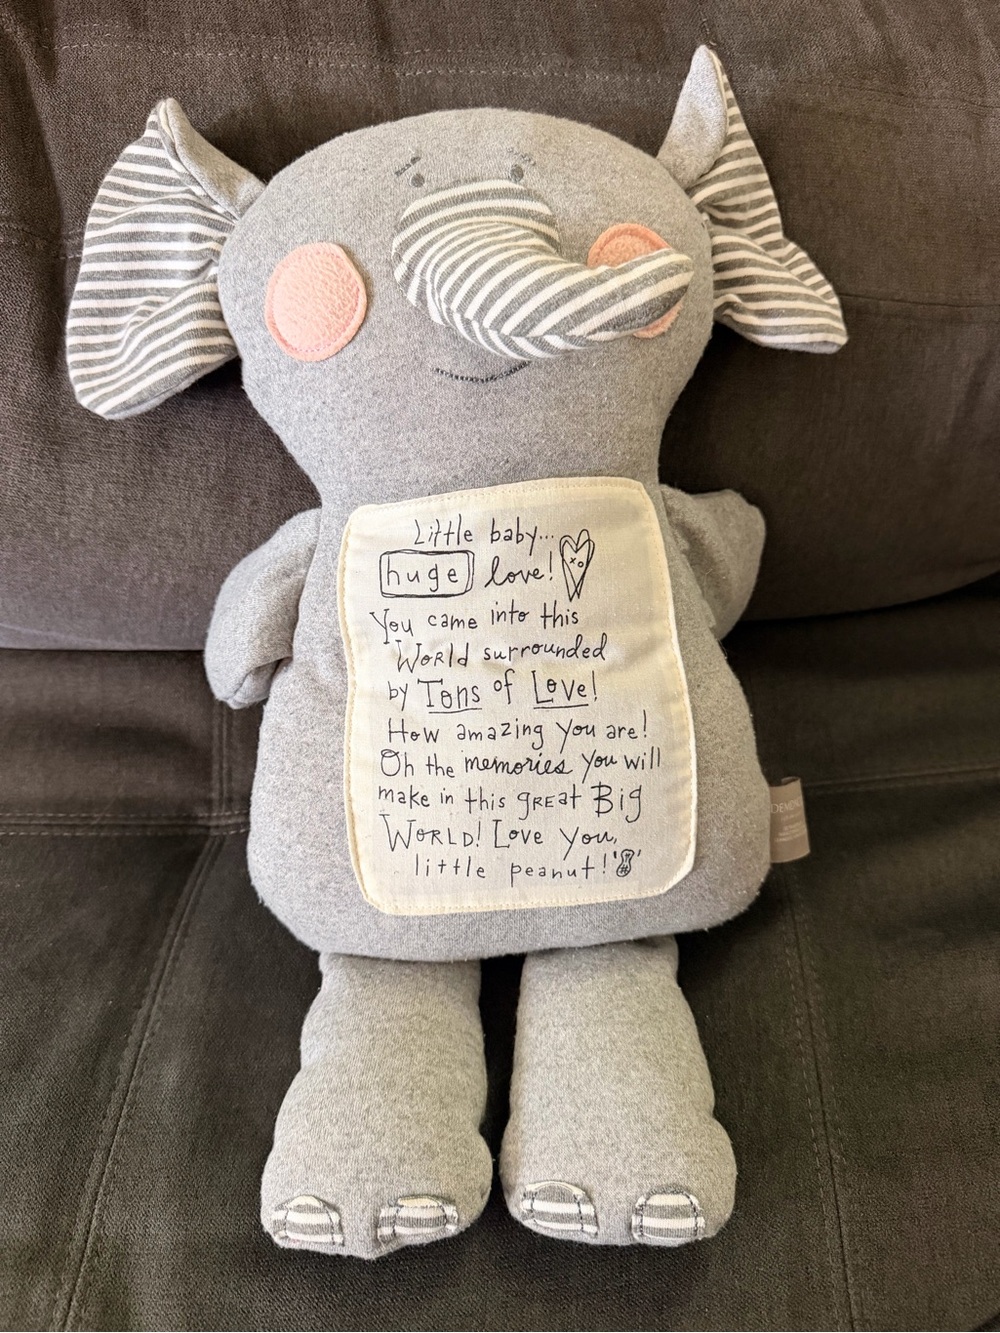 Little baby...
huge love!
You came into this
World surrounded
by Tons of Love!
How amazing you are!
Oh the memories you will
make in this great Big
World! Love you,
little peanut!
DEMDACO